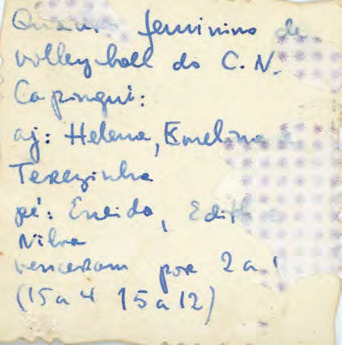 Quadro feminino de
volleyball do C.N.
Capingui:
aj: Helena, Emelina e
Terezinha
pé: Eneida, Edith e
Nilva
venceram por 2 a 1
(15 a 4 15 a 12)